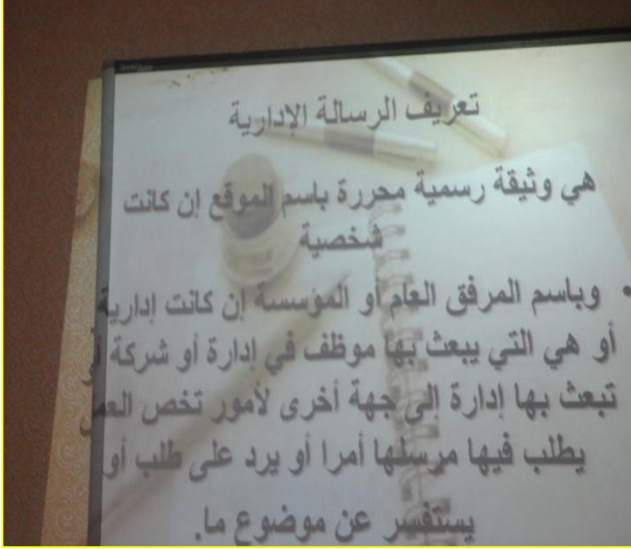 تعريف الرسالة الإدارية
هي وثيقة رسمية محررة باسم الموقع إن كانت
شخصية
• وباسم المرفق العام أو المؤسسة إن كانت إدارية
أو هي التي يبعث بها موظف في إدارة أو شركة
تبعث بها إدارة إلى جهة أخرى لأمور تخص
يطلب فيها مرسلها أمرا أو يرد على طلب أو
يستفسر عن موضوع ما.